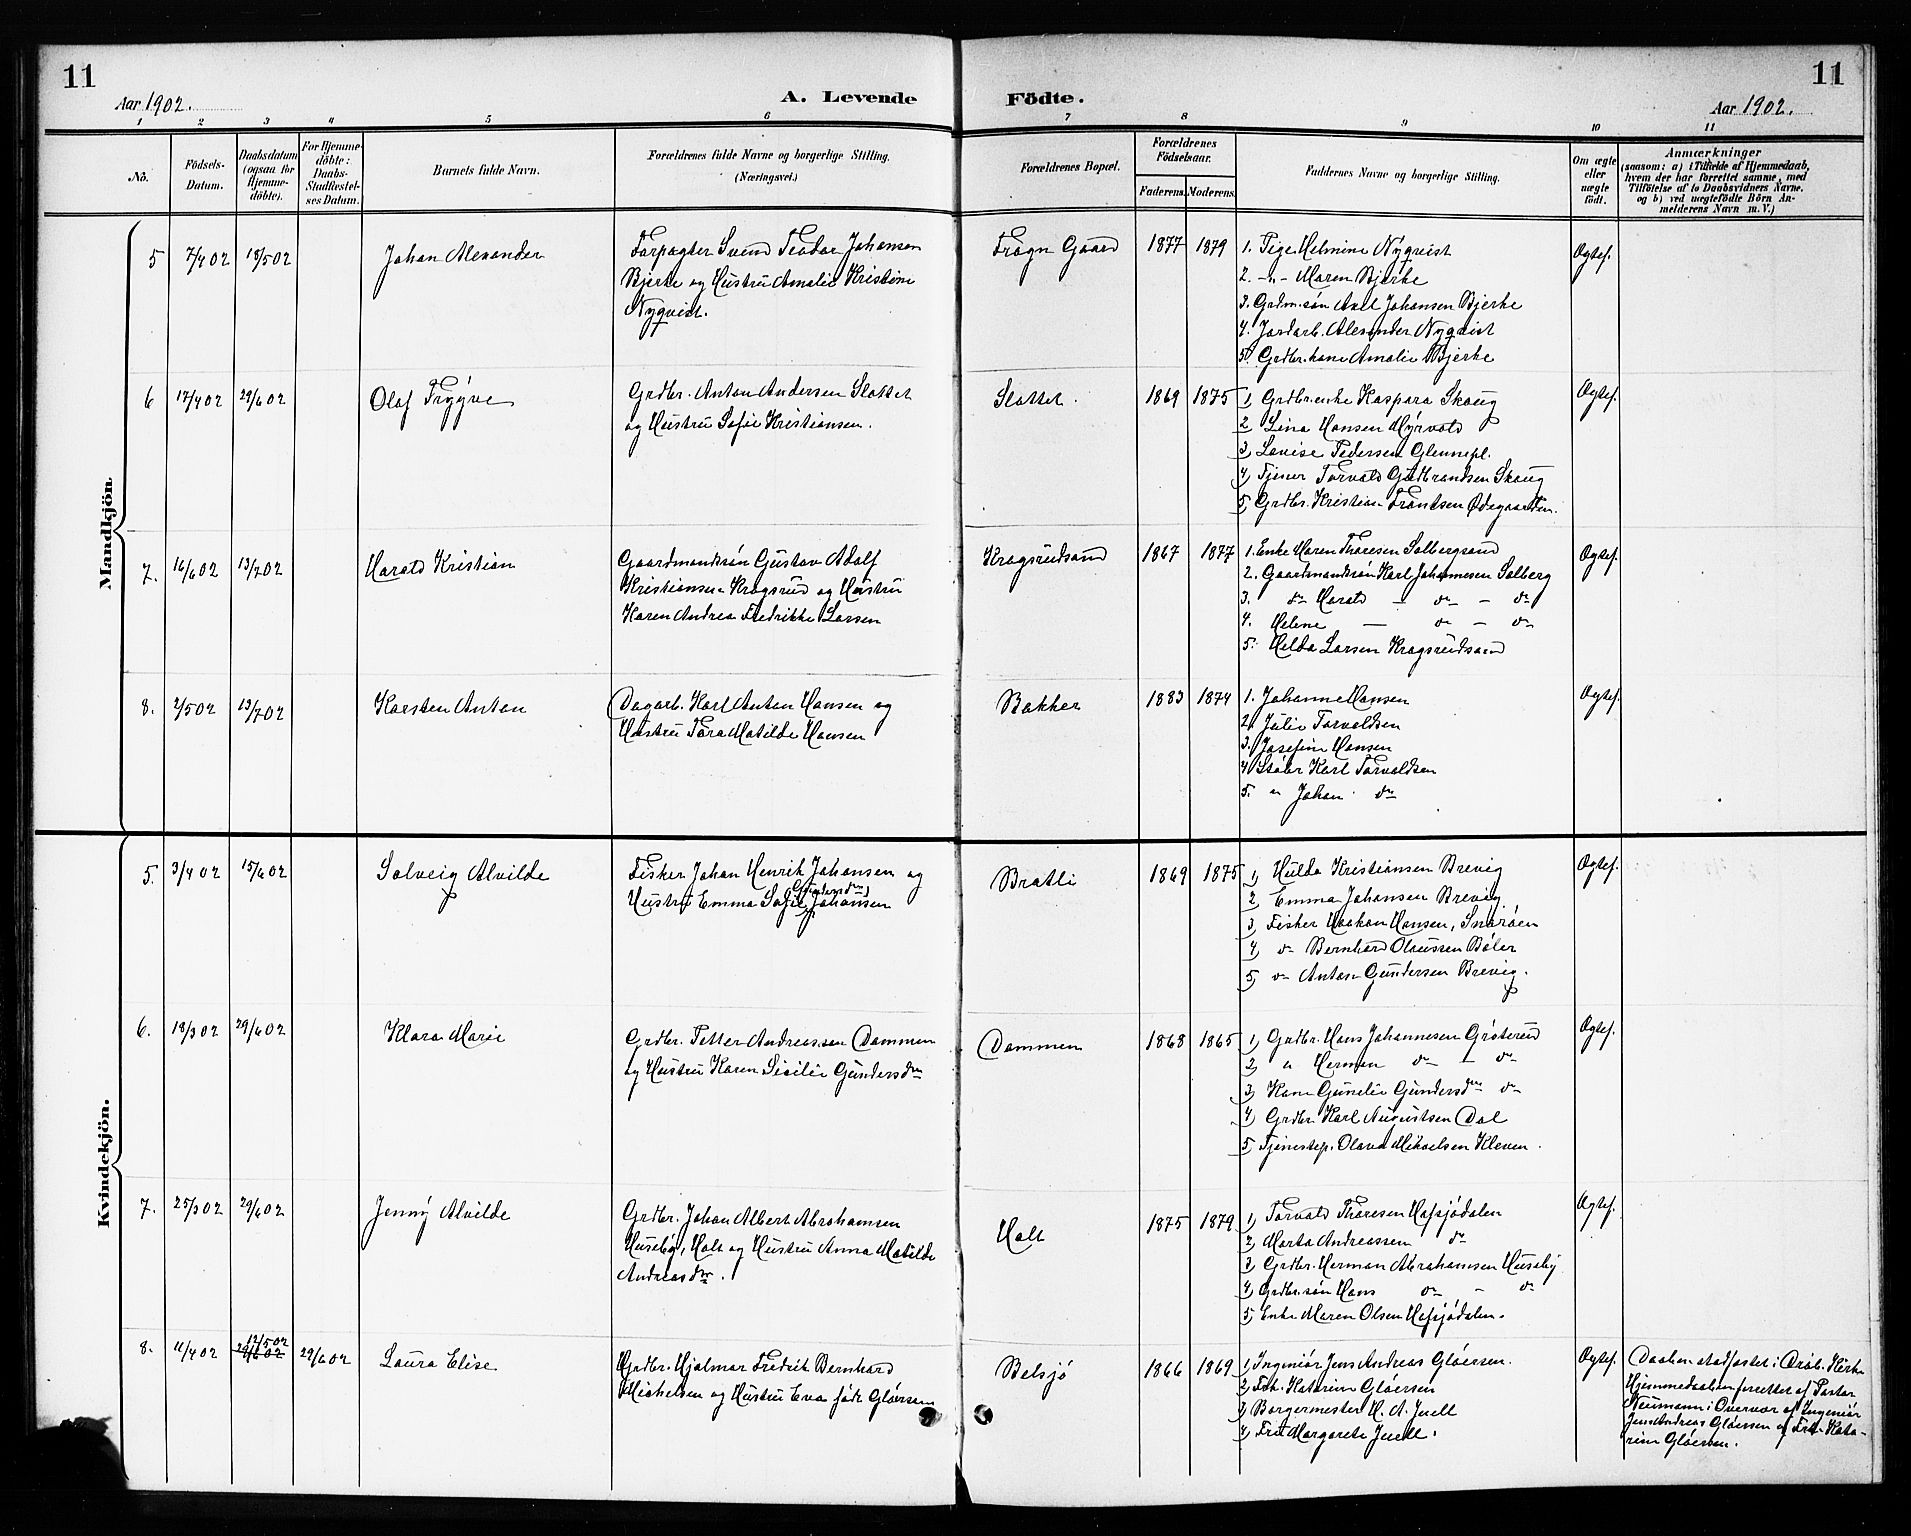 11
Aar 1902.
A. Levende Födte.
11
Aar 1902.
1 2 3 4 5 6 7 8 9 10 11
No.
Födsels-Datum.
Daabsdatum (ogsaa for Hjemme-döbte).
For Hjemme-döbte: Daabs-Stadfæstel-ses Datum.
Barnets fulde Navn.
Forældrenes fulde Navne og borgerlige Stilling.
(Næringsvei.)
Forældrenes Bopæl.
Forældrenes Födselsaar.
Faderens. Moderens.
Faddernes Navne og borgerlige Stilling.
Om ægte eller uægte födt.
Anmærkninger
(saasom: a) i Tilfælde af Hjemmedaab,
hvem der har forrettet samme, med
Tilföielse af to Daabsvidners Navne.
og b) ved uægtefödte Börn An-
melderens Navn m. V.)
Mandkjön.
5 7/4 02 18/5 02 Johan Alexander
Forpagter Svend Teodor Johansen
Bjerke og Hustru Amalie Kristine
Nyqvist.
Frogn Gaard 1877 1879
1. Pige Helmine Nyqvist
2. -"- Maren Bjerke
3. Grdm.søn Axel Johansen Bjerke
4. Jordarb. Alexander Nyqvist
5. Grdbr. kone Amalie Bjerke
Ægtef.
6 17/4 02 29/6 02 Olaf Trygve
Grdbr. Anton Andersen Slottet
og Hustru Sofie Kristiansen.
Slottet. 1869 1875
1, Grdbr.enke Kaspara Skoug
2, Lina Hansen Myrvold
3, Lovise Pedersen Glennepl.
4, Tjener Torvald Gudbrandsen Skoug
5, Grdbr. Kristian Frantsen Ødegaarden.
Ægtef.
7. 16/6 02 13/7 02 Harald Kristian
Gaardmandssøn Gustav Adolf
Kristiansen Kragsrud og Hustru
Karen Andrea Fredrikke Larsen
Kragsrudsand 1867 1877
1. Enke Maren Thoresen Solbergsund
2. Gaardmandssøn Karl Johannesen Solberg
3. do Harald — do — do
4. Helene — do — do
5. Helda Larsen Kragsrudsand
Ægtef.
8. 2/5 02 13/7 02 Karsten Anton
Dagarb. Karl Anton Hansen og
Hustru Tora Matilde Hansen
Bakker 1883 1874
1. Johanne Hansen
2. Julie Torvaldsen
3. Josefine Hansen
4. Karl Torvaldsen
5. " Johan do
Ægtef.
Kvindekjön.
5. 3/4 02 15/6 02 Solveig Alvilde
Fisker Johan Henrik Johansen og
Hustru Emma Sofie (Gundersdtr) Johansen
Bratli 1869 1875
1, Hulda Kristiansen Brevig
2, Emma Johansen Brevig
3, Fisker Haakon Hansen, Snarøen
4, do Bernhard Olaussen Bøler
5, do Anton Gundersen Brevig.
Ægtef.
6. 18/3 02 29/6 02 Klara Marie
Grdbr. Petter Andreassen Dammen
og Hustru Karen Sicilie Gundersdtr
Dammen 1868 1865
1, Grdbr. Hans Johannesen Grøterud
2, " Herman do — do
3, Kone Gunelie Gundersdtr do
4, Grdbr. Karl Augustsen Dal
5, Tjenestep. Olava Mikaelsen Kleven.
Ægtef.
7. 25/3 02 29/6 02 Jenny Alvilde
Grdbr. Johan Albert Abrahamsen
Huseby, Holt og Hustru Anna Matilde
Andreasdtr.
Holt 1875 1879
1, Torvald Thoresen Hofsjødalen
2, Marta Andreassen do
3, Grdbr. Herman Abrahamsen Huseby
4, Grdbr.søn Hans do - do
5, Enke Maren Olsen Hofsjødalen.
Ægtef.
8. 11/4 02 12/5 02 29/6 02 29/6 02 Laura Elise
Grdbr. Hjalmar Fredrik Bernhard
Michelsen og Hustru Eva født Gløersen
Belsjø 1866 1869
1, Ingeniør Jens Andreas Gløersen.
2, Frk. Katarine Gløersen
3, Borgermester H. A. Juell
4, Fru Margarete Juell.
Ægtef.
Daaben stadfæstet i Drøb. Kirke
Hjemmedaaben forrettet af Pastor
Neumann i Overvær af Ingeniør
Jens Andreas Gløersen og Frk. Kata-
rine Gløersen.